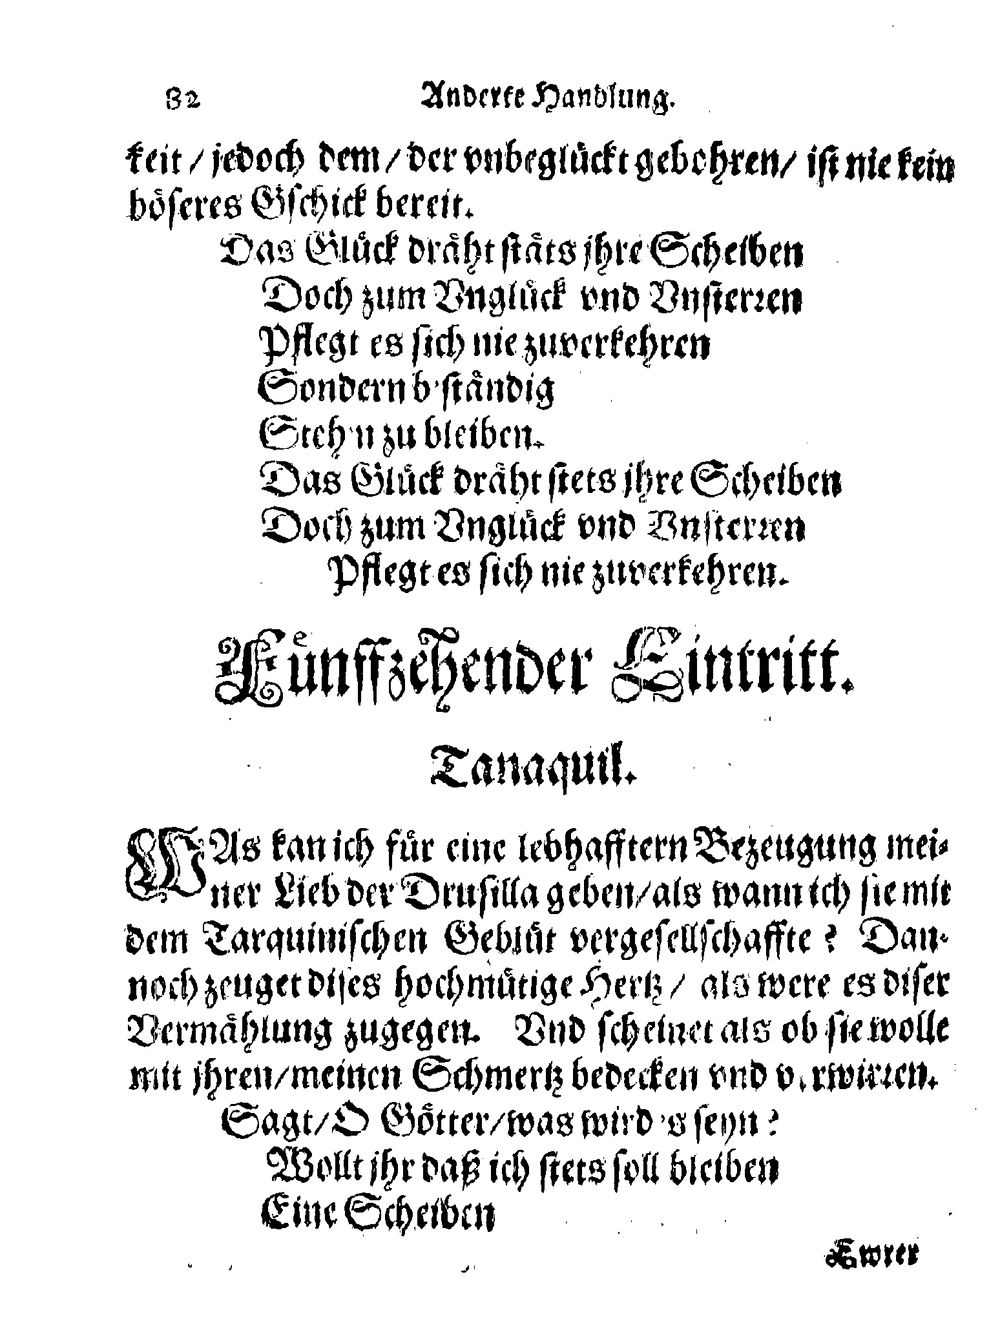 82 Anderte Handlung.
keit / jedoch dem / der vnbeglückt gebohren / ist nie kein
böseres Gschick bereit.
Das Glück dräht stäts jhre Scheiben
Doch zum Vnglück vnd Vnsterren
Pflegt es sich nie zuverkehren
Sondern b'ständig
Steh'n zu bleiben.
Das Glück dräht stets jhre Scheiben
Doch zum Vnglück vnd Vnsterren
Pflegt es sich nie zuverkehren.
Fünffzehender Eintritt.
Tanaquil.
WAs kan ich für eine lebhafftern Bezeugung mei-
ner Lieb der Drusilla geben / als wann ich sie mit
dem Tarquinischen Geblüt vergesellschaffte ? Dan-
noch zeuget dises hochmütige Hertz / als were es diser
Vermählung zugegen. Vnd scheinet als ob sie wolle
mit jhren / meinen Schmertz bedecken vnd verwirren.
Sagt / O Götter / was wird 's seyn ?
Wollt jhr daß ich stets soll bleiben
Eine Scheiben
Ewrer